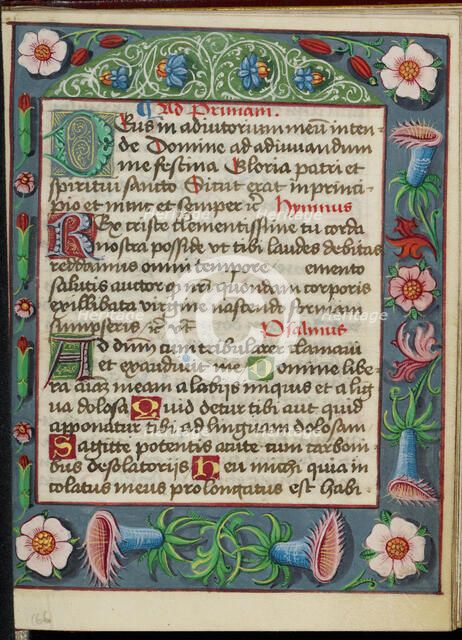 Ad Primam.
Deus in adiutorium meu͂ inten-
de Domine ad adiuuandum
me festina Gloria patri et
spiritui sancto Sicut erat in princi-
pio et nunc et semper ꝛc̄ Hymnus
Rex criste clementissime tu corda
nostra posside vt tibi laudes debitas
reddamus omni tempore emento
salutis auctor nr̄i quondam corporis
ex illibata virgine nascendo formam
sumpseris ꝛc̄ Psalmus
Ad dnm̄ cum tribularer clamaui
et exaudiuit me Domine libe-
ra aı̄az meam a labijs iniquis et a lig
ua dolosa Quid detur tibi aut quid
apponatur tibi ad linguam dolosam
Sagitte potentis acute cum carboni-
bus desolatorijs Heu michi quia in-
colatus meus prolongatus est habi-
Heritage
Heritage
Heritage
Heritage
66